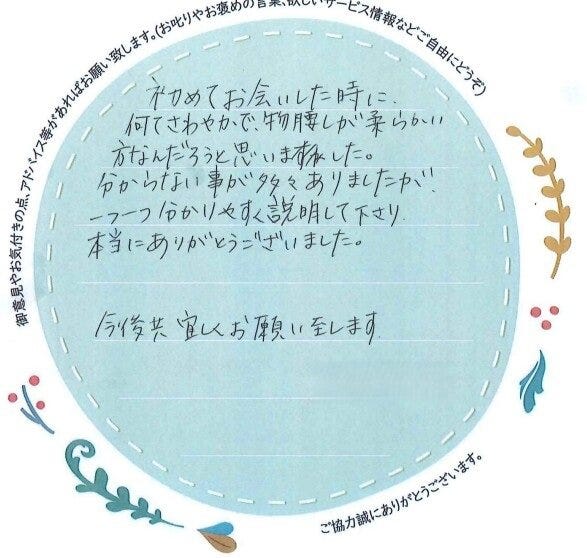 御意見やお気付きの点、アドバイス等があればお願い致します。(お叱りやお褒めの言葉、欲しいサービス情報などご自由にどうぞ)
初めてお会いした時に、
何てさわやかで、物腰しが柔らかい
方なんだろうと思いました。
分からない事が多々ありましたが、
一つ一つ分かりやすく説明して下さり
本当にありがとうございました。
今後共宜しくお願い至します
ご協力誠にありがとうございます。